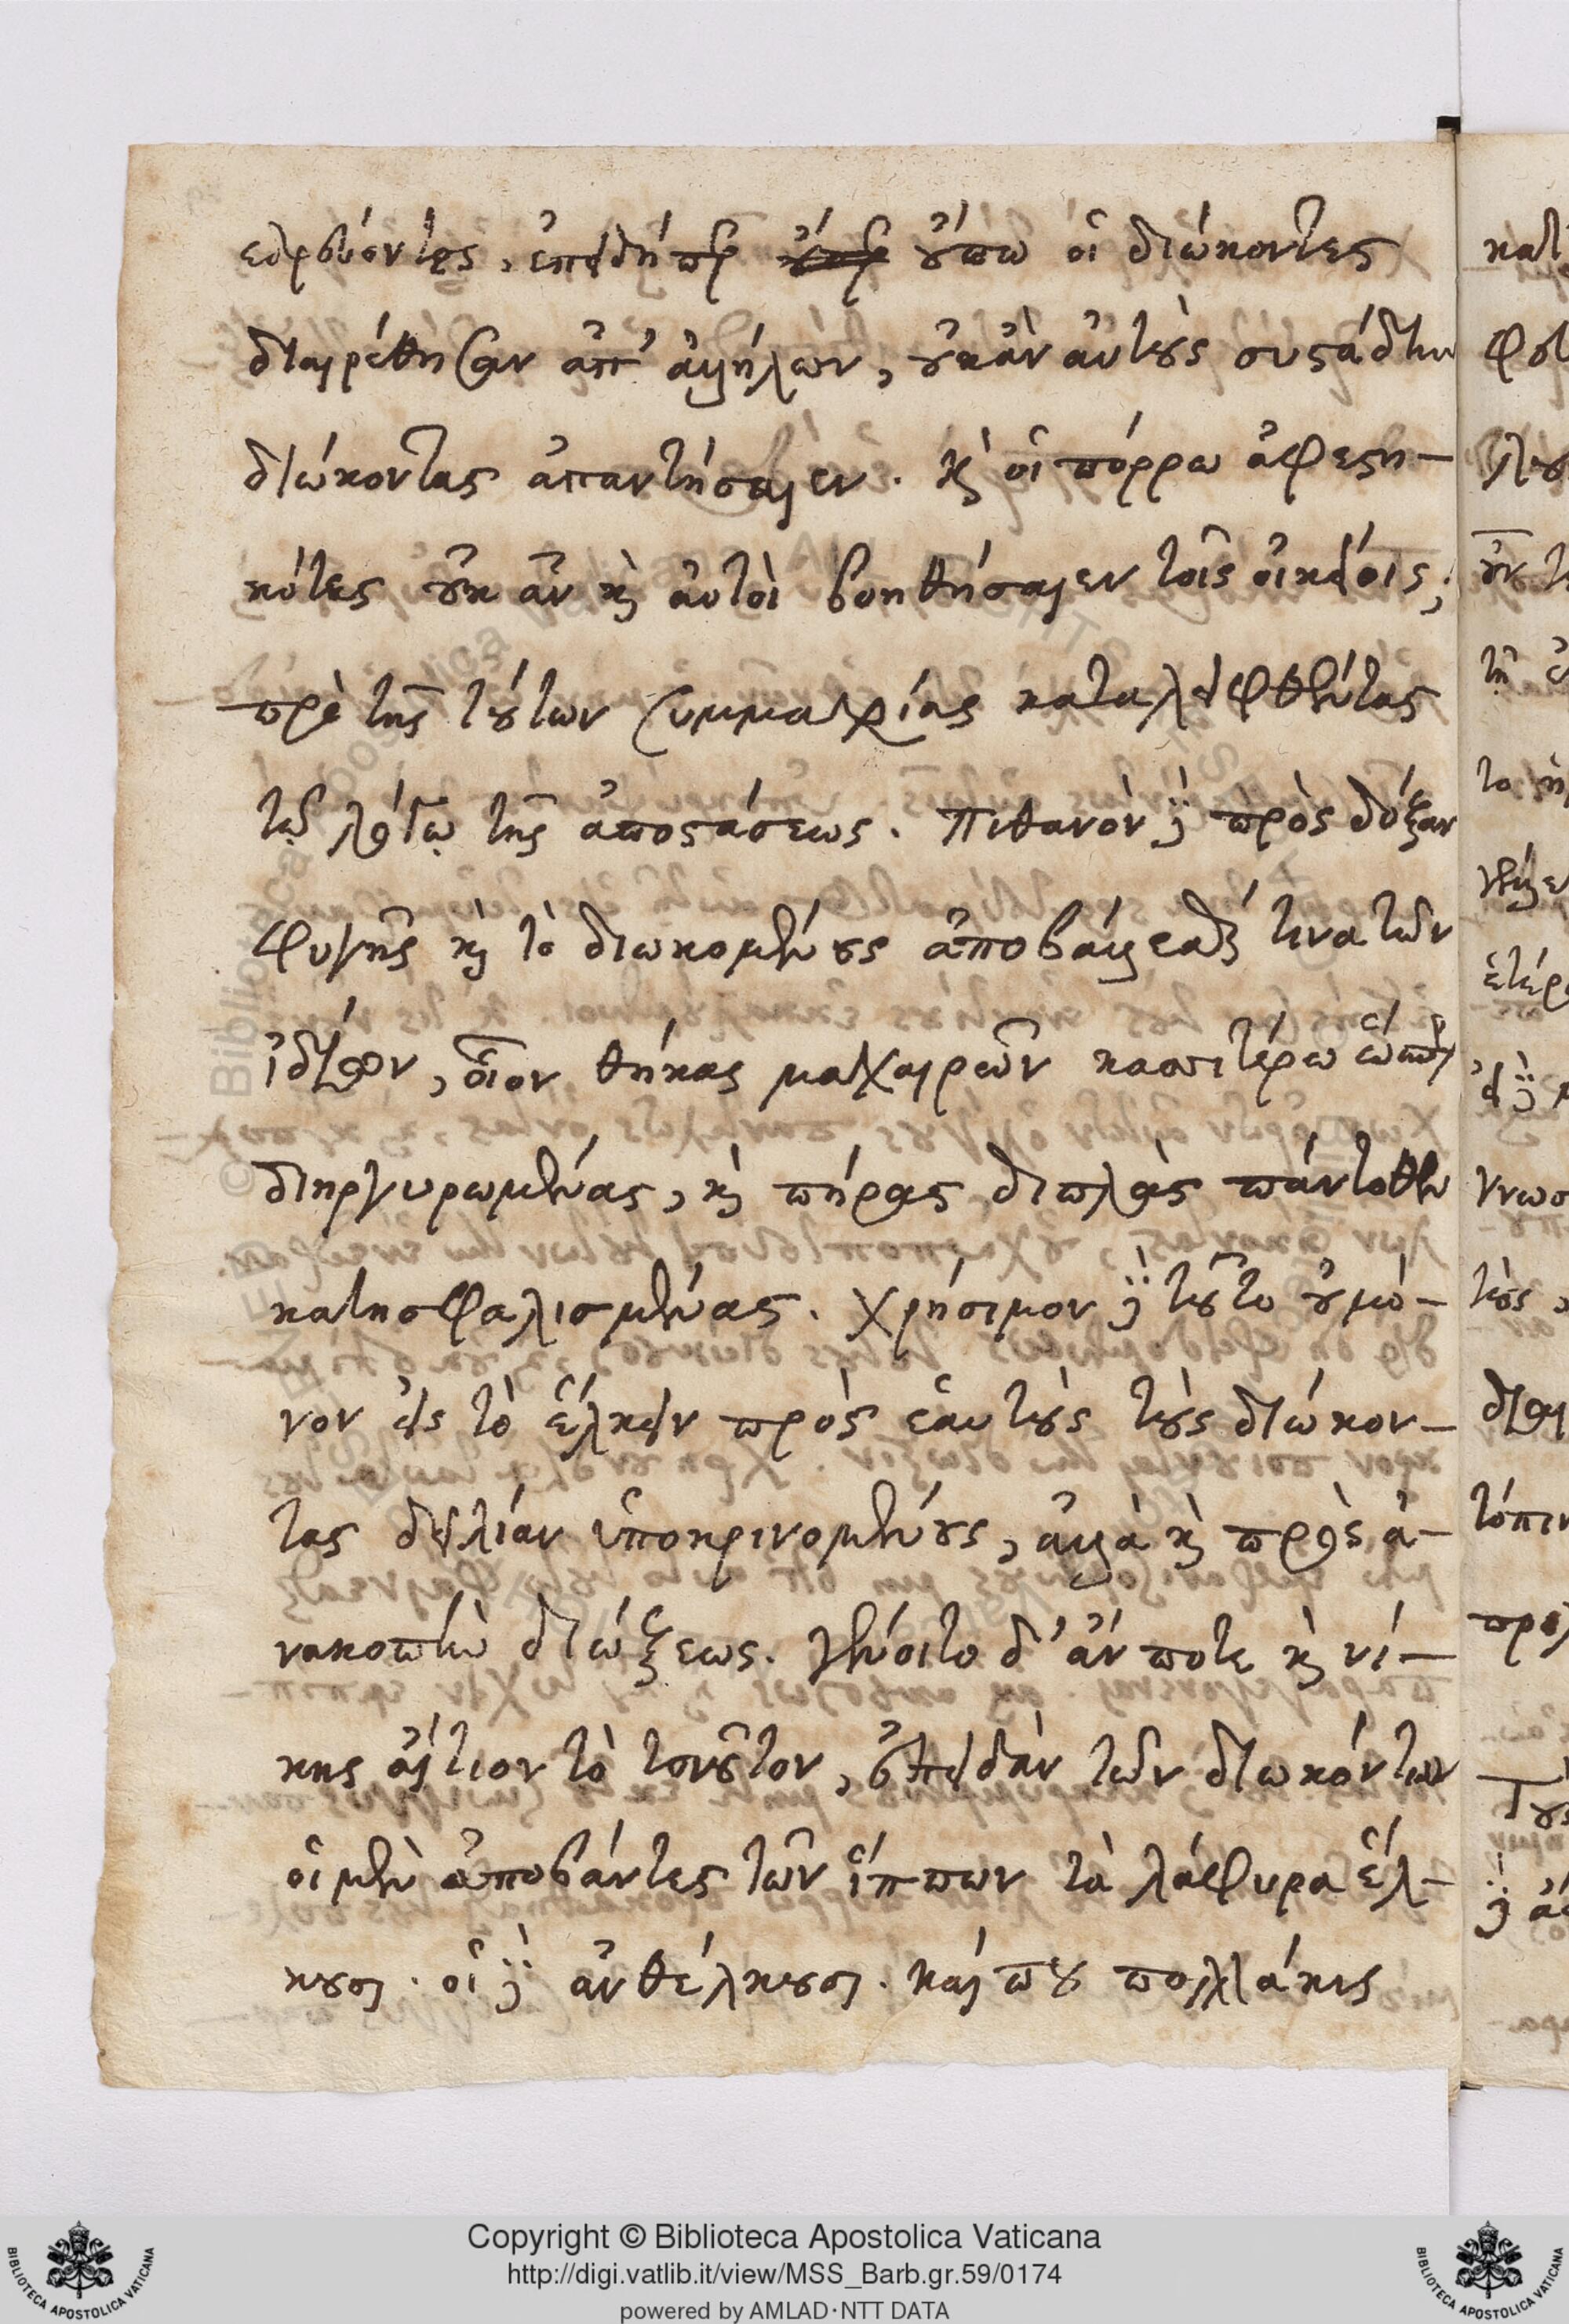 ἐπειδήπερ οὔπω οἱ διώκοντες
διαιρέθησαν ἀπ' ἀλλήλων, οὐκ ἂν αὐτοὺς συστάδην
διώκοντας ἀπαντήσαιεν. καὶ οἱ πόρρω ἀφεστη-
κότες οὐκ ἂν καὶ αὐτοὶ βοηθήσαιεν τοῖς οἰκείοις,
πρὸ τῆς τούτων συμμαχίας καταλειφθέντας
τῷ τῆς ἀποστάσεως. πιθανὸν δὲ πρὸς δόξαν
φυγῆς καὶ τὸ διωκομένους ἀποβάλλεσθαί τινα τῶν
ἰδίων, οἷον θήκας μαχαιρῶν κασσιτέρῳ
διηργυρωμένας, καὶ πήρας διπλὰς πάντοθεν
κατησφαλισμένας. χρήσιμον δὲ τοῦτο οὐ μό-
νον εἰς τὸ ἕλκειν πρὸς ἑαυτοὺς τοὺς διώκον-
τας δειλίαν ὑποκρινομένους, ἀλλὰ καὶ πρὸς ἀ-
νακοπὴν διώξεως. γένοιτο δ' ἄν ποτε καὶ νί-
κης αἴτιον τὸ τοιοῦτον, ἐπειδὰν τῶν διωκόντων
οἱ μὲν ἀποβάντες τῶν ἵππων τὰ λάφυρα ἕλ-
κουσι. οἱ δὲ ἀνθέλκουσι. καί που πολλάκις
Copyright © Biblioteca Apostolica Vaticana
http://digi.vatlib.it/view/MSS_Barb.gr.59/0174
powered by AMLAD·NTT DATA
BIBLIOTECA APOSTOLICA VATICANA
BIBLIOTECA APOSTOLICA VATICANA